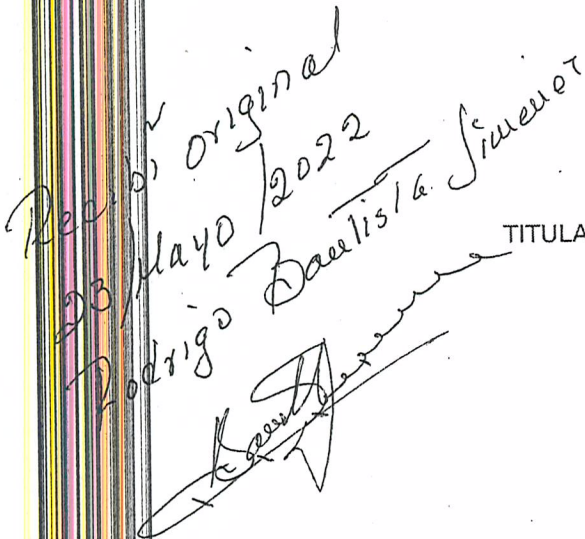 Recibi original
23/Mayo/2022
Rodrigo Bautista Jimenez
TITULA